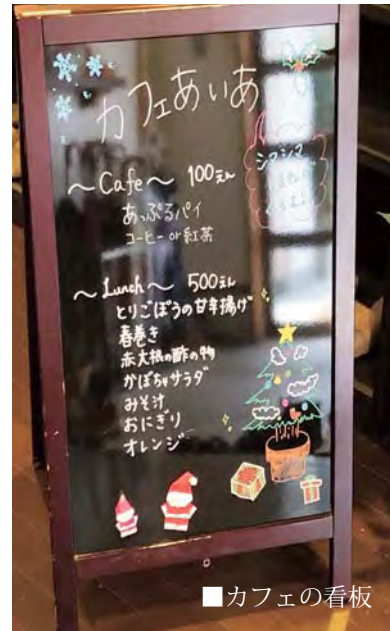 カフェあいあ
シマシマ
～Cafe～ 100えん
あっぷるパイ
コーヒー or 紅茶
～Lunch～ 500えん
とりごぼうの甘辛揚げ
春巻き
赤大根の酢の物
かぼちゃサラダ
みそ汁
おにぎり
オレンジ
■カフェの看板